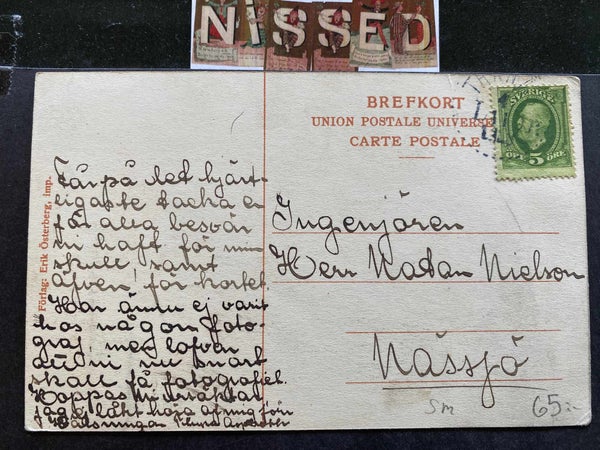 NISSED
BREFKORT
UNION POSTALE UNIVERSE
CARTE POSTALE
SVERIGE
5 ÖRE
Förlag: Erik Österberg, imp.
Får på det hjärt-
ligaste tacka er
för allt besvär
ni haft för min
skull, samt
äfven för kortet.
Har ännu ej varit
hos någon foto-
graf, men lofvar
att ni nu snart
skall få fotografiet.
Hoppas ni
låtit höra af mig förr
Hälsningar
Ingenjören
Herr Natan Nielson
Nässjö
Sm
65:-